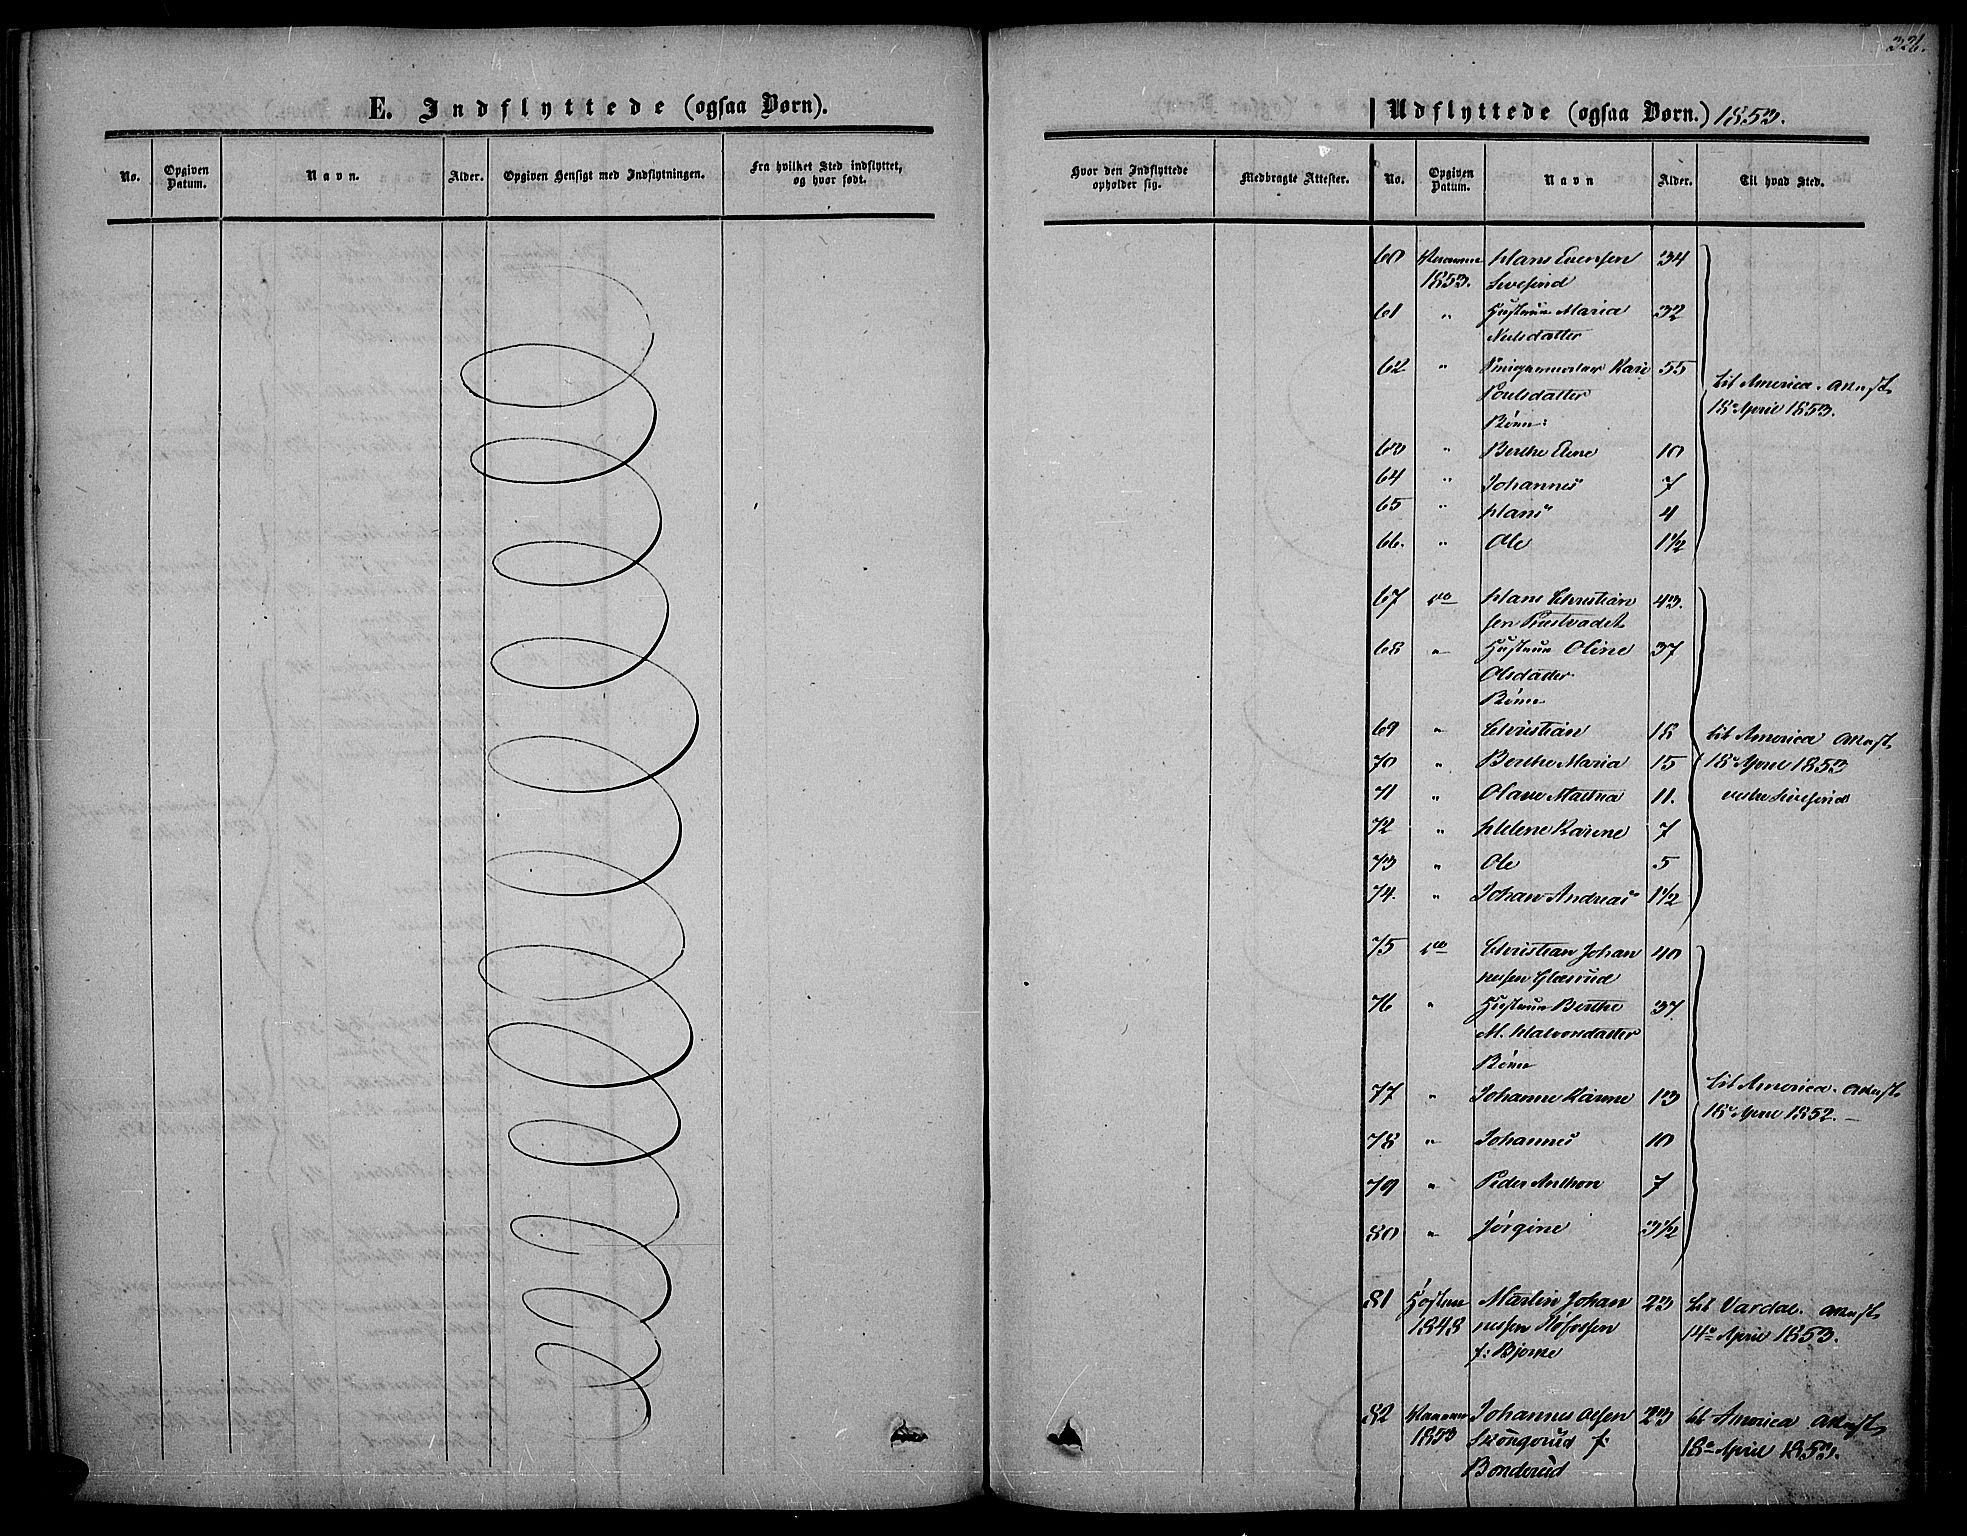 326.
E. Indflyttede (ogsaa Børn).
No.
Opgiven Datum.
Navn.
Alder.
Opgiven Hensigt med Indflytningen.
Fra hvilket Sted indflyttet, og hvor født.
Udflyttede (ogsaa Børn.) 1853.
Hvor den Indflyttede opholder sig.
Medbragte Attester.
No.
Opgiven Datum.
Navn
Alder.
Til hvad Sted.
60 1853. Hans Evensen 34
Sivesind
61 " Hustrue Maria 32
Nielsdatter
62 " Kari 55
Poulsdatter
til America. Attest
18de April 1853.
Børn:
63 " Berthe Eline 10
64 " Johannes 7
65 " Hans 4
66. " Ole 1½
67 do Hans Christian 43.
sen
68 " Hustrue Oline 37
Olsdatter
Børn
69 " Christian 18
til America Attest
70 " Berthe Maria 15
18de April 1853
71 " Olave Mathea 11.
72 " Helene Karine 7
73 " Ole 5
74. " Johan Andreas 1½
75 do Christian Johan 40
nessen Glæsrud
76 " Hustrue Berthe 37
M. Halvorsdatter
Børn
77 " Johanne Karine 13
til America. Attest
18de April 1852. —
78 " Johannes 10
79 " Peder Anthon 7
80 " Jørgine 3½
81 Høsten Martin Johan 23 til Vardal. Attest
1848 nessen 14de April 1853.
f: Bjørne
82 Johannes Olsen 23 til America Attest
1853 f: 18de April 1853.
Bonderud